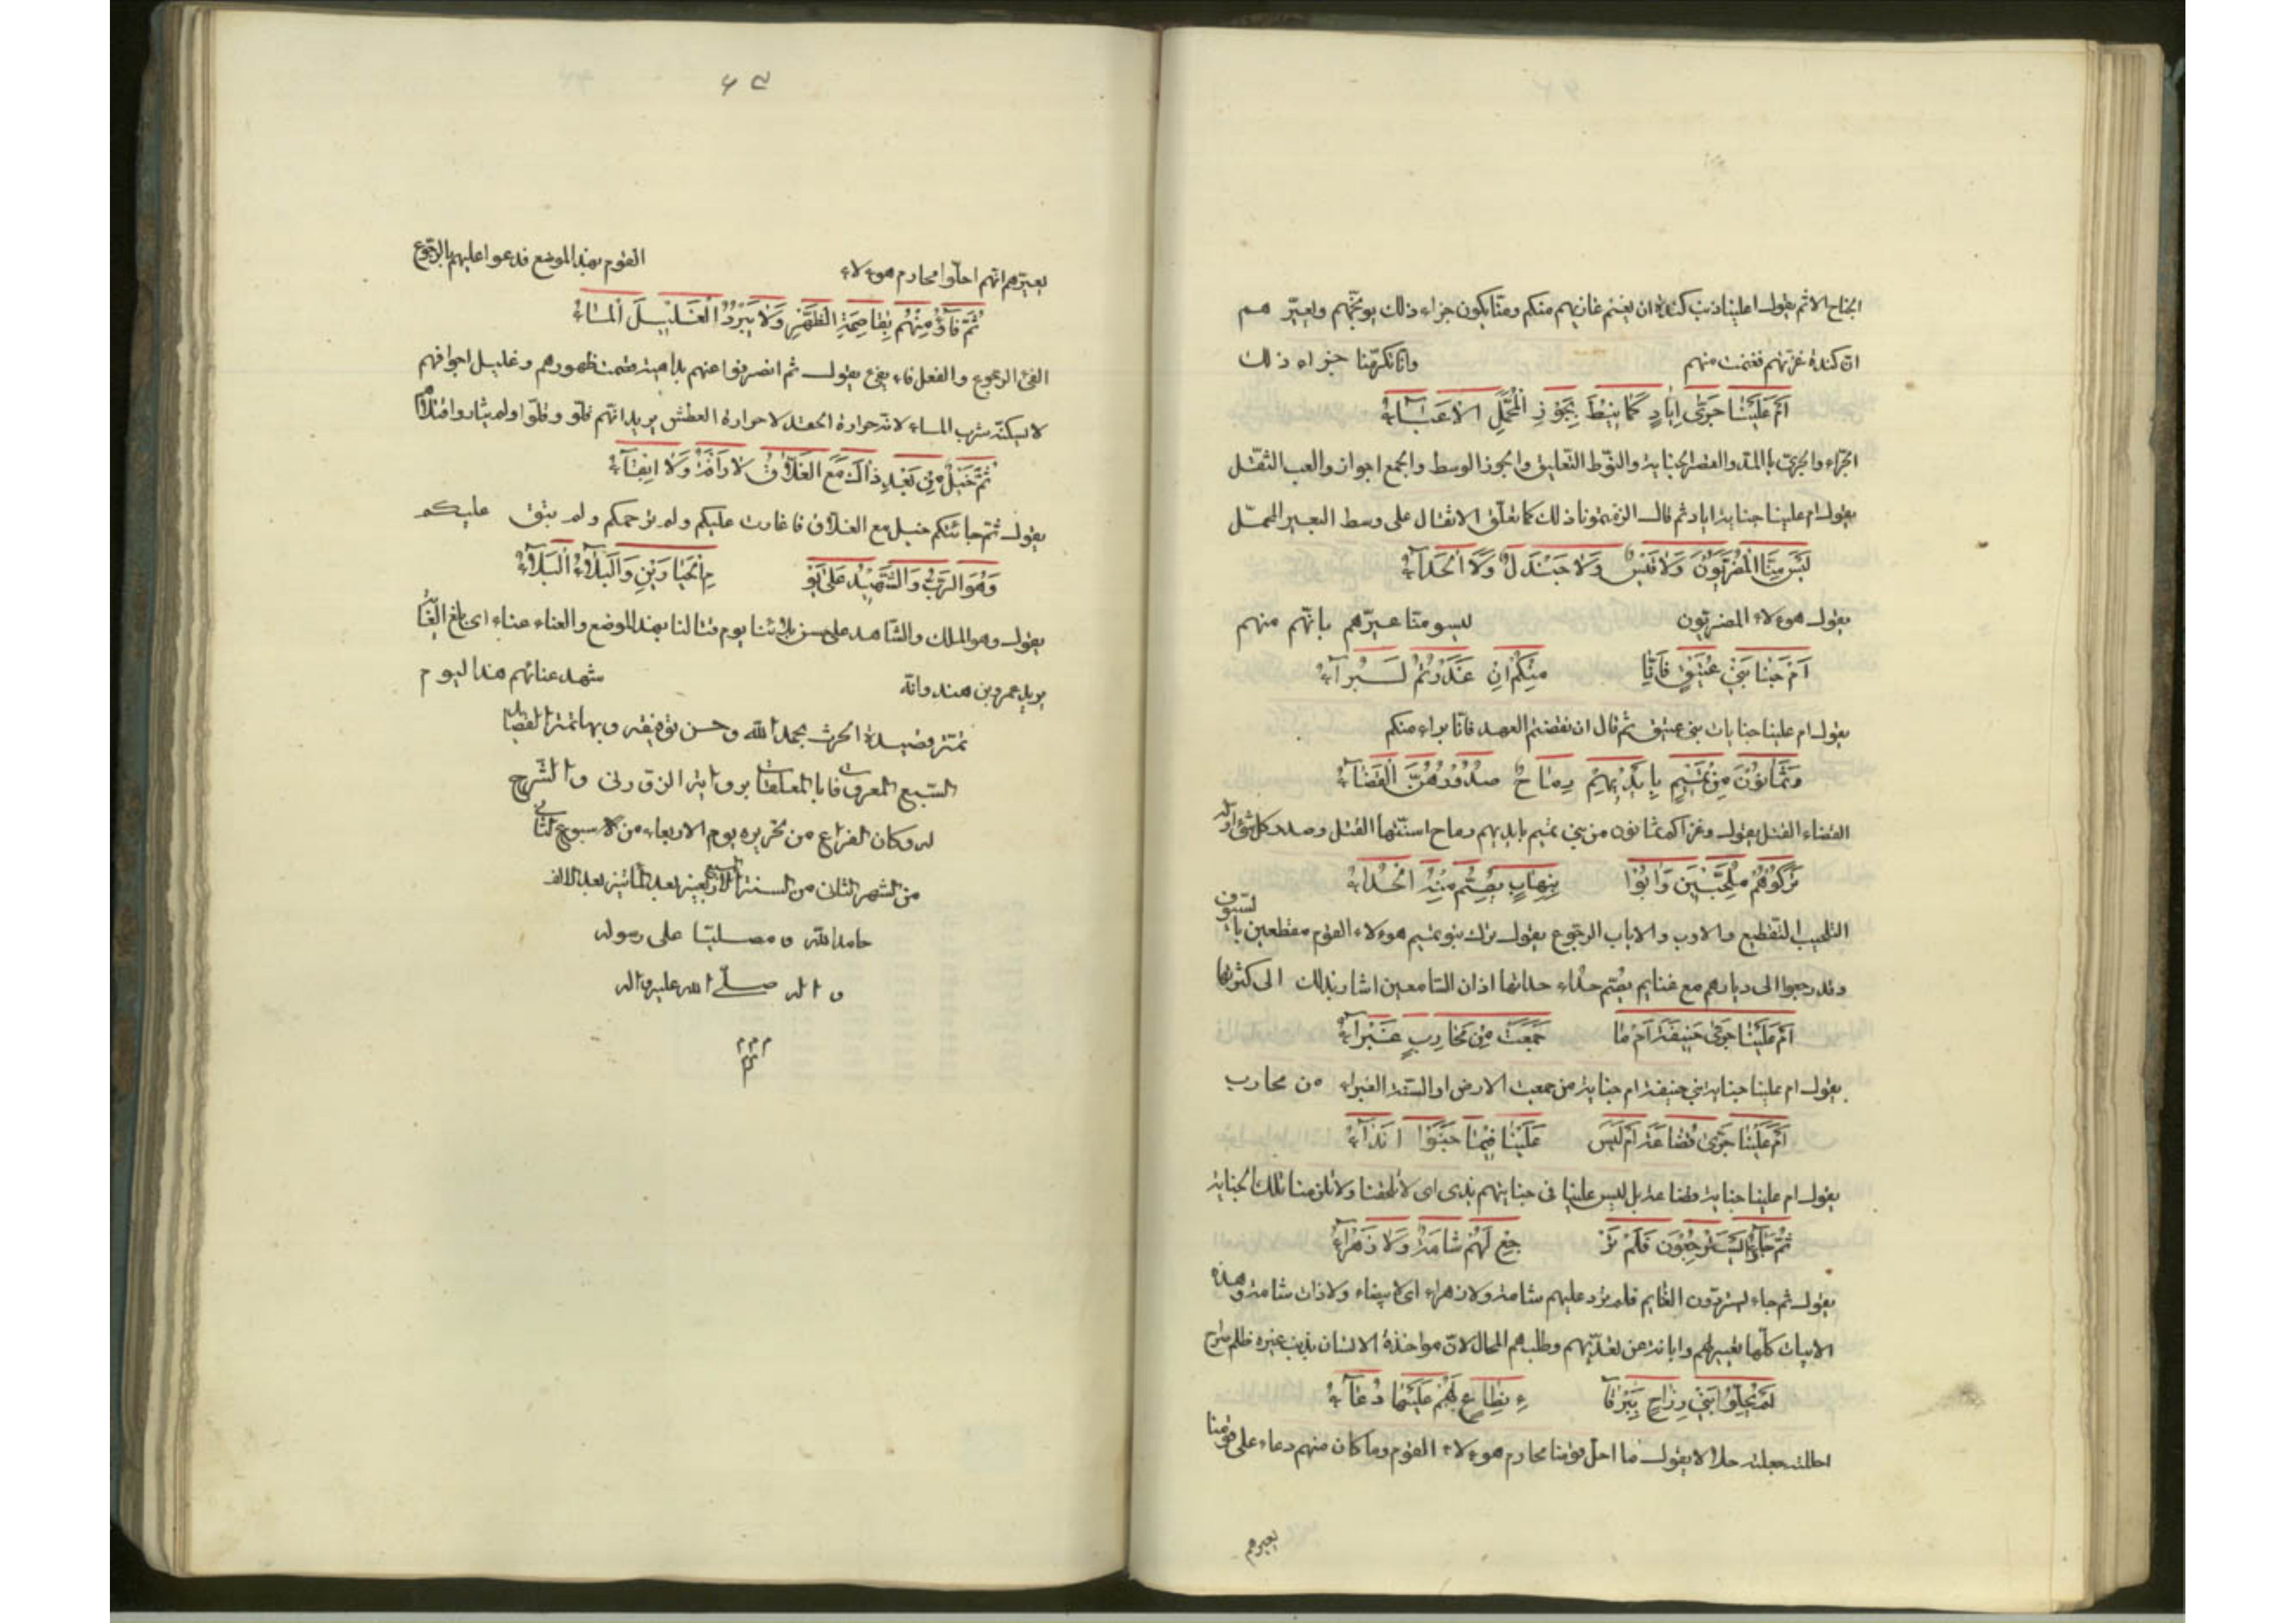 الجناح الاثم يقول اعلينا ذنب كندة ان يغنم غازيهم منكم ومنا يكون جزاء ذلك يوبخهم ويعير هم
ان كندة غزتهم فغنمت منهم وانا كرهنا جزاء ذلك
اَمْ عَلَيْنَا جَرَّى اِيَادٍ كَمَا نِيْطَ بِجَوْزِ الْمُحَمَّلِ الاَعْبَآءُ
الجراء والجرى بالمد والقصر الجناية والنوط التعليق والجوز الوسط والجمع اجواز والعب الثقل
يقول ام علينا جناية اياد ثم قال الزمتمونا ذلك كما تعلق الاثقال على وسط البعير المحمل
لَيْسَ مِنَّا الْمُضَرَّبُونَ وَلا قَيْسٌ وَلا جَنْدَلٌ وَلَا الْحَدَآءُ
يقول هوءلاء المضربون ليسو منا عيرهم بانهم منهم
اَمْ جَنَايَا بَنِي عَتِيْقٍ فَاِنَّا مِنْكُمْ اِنْ غَدَرْتُمْ لَبُرَآءُ
يقول ام علينا جنايات بنى عتيق ثم قال ان نقضتم العهد فانا براء منكم
وَثَمَانُوْنَ مِنْ تَمِيْمٍ بِاَيْدِيْهِمْ رِمَاحٌ صُدُوْرُهُنَّ الْقَضَآءُ
القضاء القتل يقول وغزاكم ثمانون من بنى تميم بايديهم رماح اسنتها القتل وصدر كل شئ اوله
تَرَكُوْهُمْ مُلَحَّبِيْنَ وَآبُوْا بِنِهَابٍ يُصِمُّ مِنْهُ الْحُدَاءُ
التلحيب التقطيع والاوب والاياب الرجوع يقول ترك بنو تميم هوءلاء القوم مقطعين بالسيوف
وقد رجعوا الى ديارهم مع غنايم يصم حداء حداتها اذان السامعين اشار بذلك الى كثرتها
اَمْ عَلَيْنَا جَرَّى حَنِيفَةَ اَمْ مَا جَمَعَتْ مِنْ مُحَارِبٍ غَبْرَآءُ
يقول ام علينا جناية بني حنيفة ام جناية من جمعت الارض او السنة الغبراء من محارب
اَمْ عَلَيْنَا جَرَّى قُضَاعَةَ اَمْ لَيْسَ عَلَيْنَا فِيْمَا جَنَوْا اَنْدَآءُ
يقول ام علينا جناية قضاعة بل ليس علينا فى جنايتهم ندى اى لا تلحقنا ولا تلزمنا تلك الجناية
ثُمَّ جَاؤُا يَسْتَرْجِعُوْنَ فَلَمْ تَرْ جِعْ لَهُمْ شَامَةٌ وَلَا زَهْرَآءُ
يقول ثم جاء يستردون الغنايم فلم ترد عليهم شامة ولا زهراء اى لا بيضاء ولا ذات شامة وهذه
الابيات كلها تعيير لهم وابانة عن تعديهم وطلبهم المحال لان مواخذة الانسان بذنب غيره ظلم صراح
لَمْ يُحِلُّوْا بَنِي رِزَاحٍ بِبَرْقَآ ءِ نِطَاعٍ لَهُمْ عَلَيْهِمْ دُعَآءُ
احللته جعلته حلالا يقول ما احل قومنا محارم هوءلاء القوم وما كان منهم دعاء على قومنا
يعيرهم
يعيرهم انهم احلوا محارم هوءلاء القوم بهذا الموضع فدعوا عليهم بالرجوع
ثُمَّ فَآؤُ مِنْهُمْ بِقَاصِمَةِ الظَّهْرِ وَلَا يَبْرُدُ الْغَلِيْلَ الْمَاءُ
الفئ الرجوع والفعل فاء يفئ يقول ثم انصرفوا عنهم بداهية قصمت ظهورهم وغليل اجوافهم
لا يسكنه شرب الماء لانه حرارة الحقد لا حرارة العطش يريد انهم قتلوا ولم يثاروا
ثُمَّ خَيْلٌ مِنْ بَعْدِ ذَاكَ مَعَ الغَلّاقِ لا رَاْفَةٌ وَلَا اِبْقَآءُ
يقول ثم جائتكم خيل مع الغلاق فاغارت عليكم ولم ترحمكم ولم تبق عليكم
وَهُوَ الرَّبُّ وَالشَّهِيْدُ عَلَى يَوْ مِ الْحِيَارَيْنِ وَالْبَلآءُ الْبَلآءُ
يقول وهو الملك والشاهد على حسن بلائنا يوم قتالنا بهذا الموضع والعناء عناء اى بلغ الغاية
يريد عمرو بن هند وانه شهد عنائهم هذا ليوم
تمت قصيدة الحرث بحمد الله وحسن توفيقه وبها تمت القصايد
السبع المعروفات بالمعلقات برواية الزوزنى والشرح
له وكان الفراغ من تحريره يوم الاربعاء من الاسبوع الثانى
من الشهر الثانى من السنة الاربعين بعد المائتين بعد الالف
حامدا لله و مصليا على رسوله
و اله صلى الله عليه واله